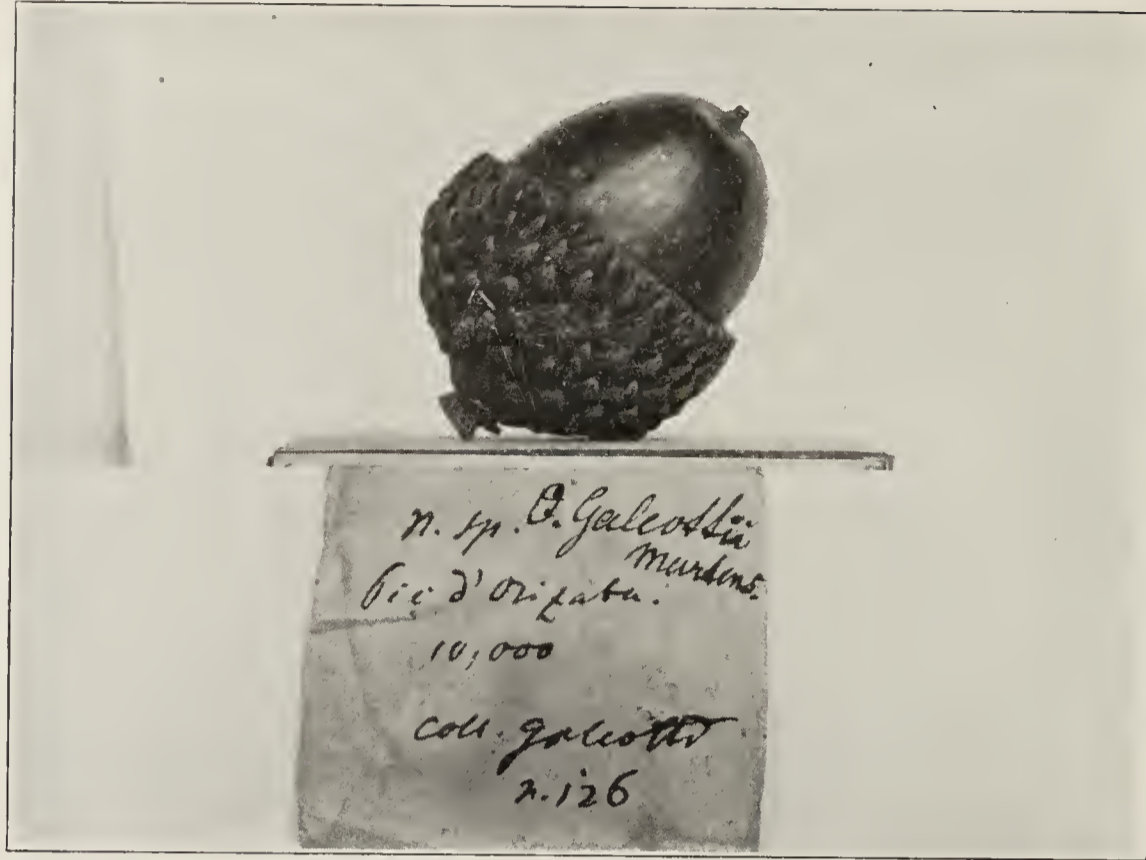 n. sp. Q. Galeottii
Martens.
Pic d'Orizaba.
10,000
Coll. Galeotti
n. 126